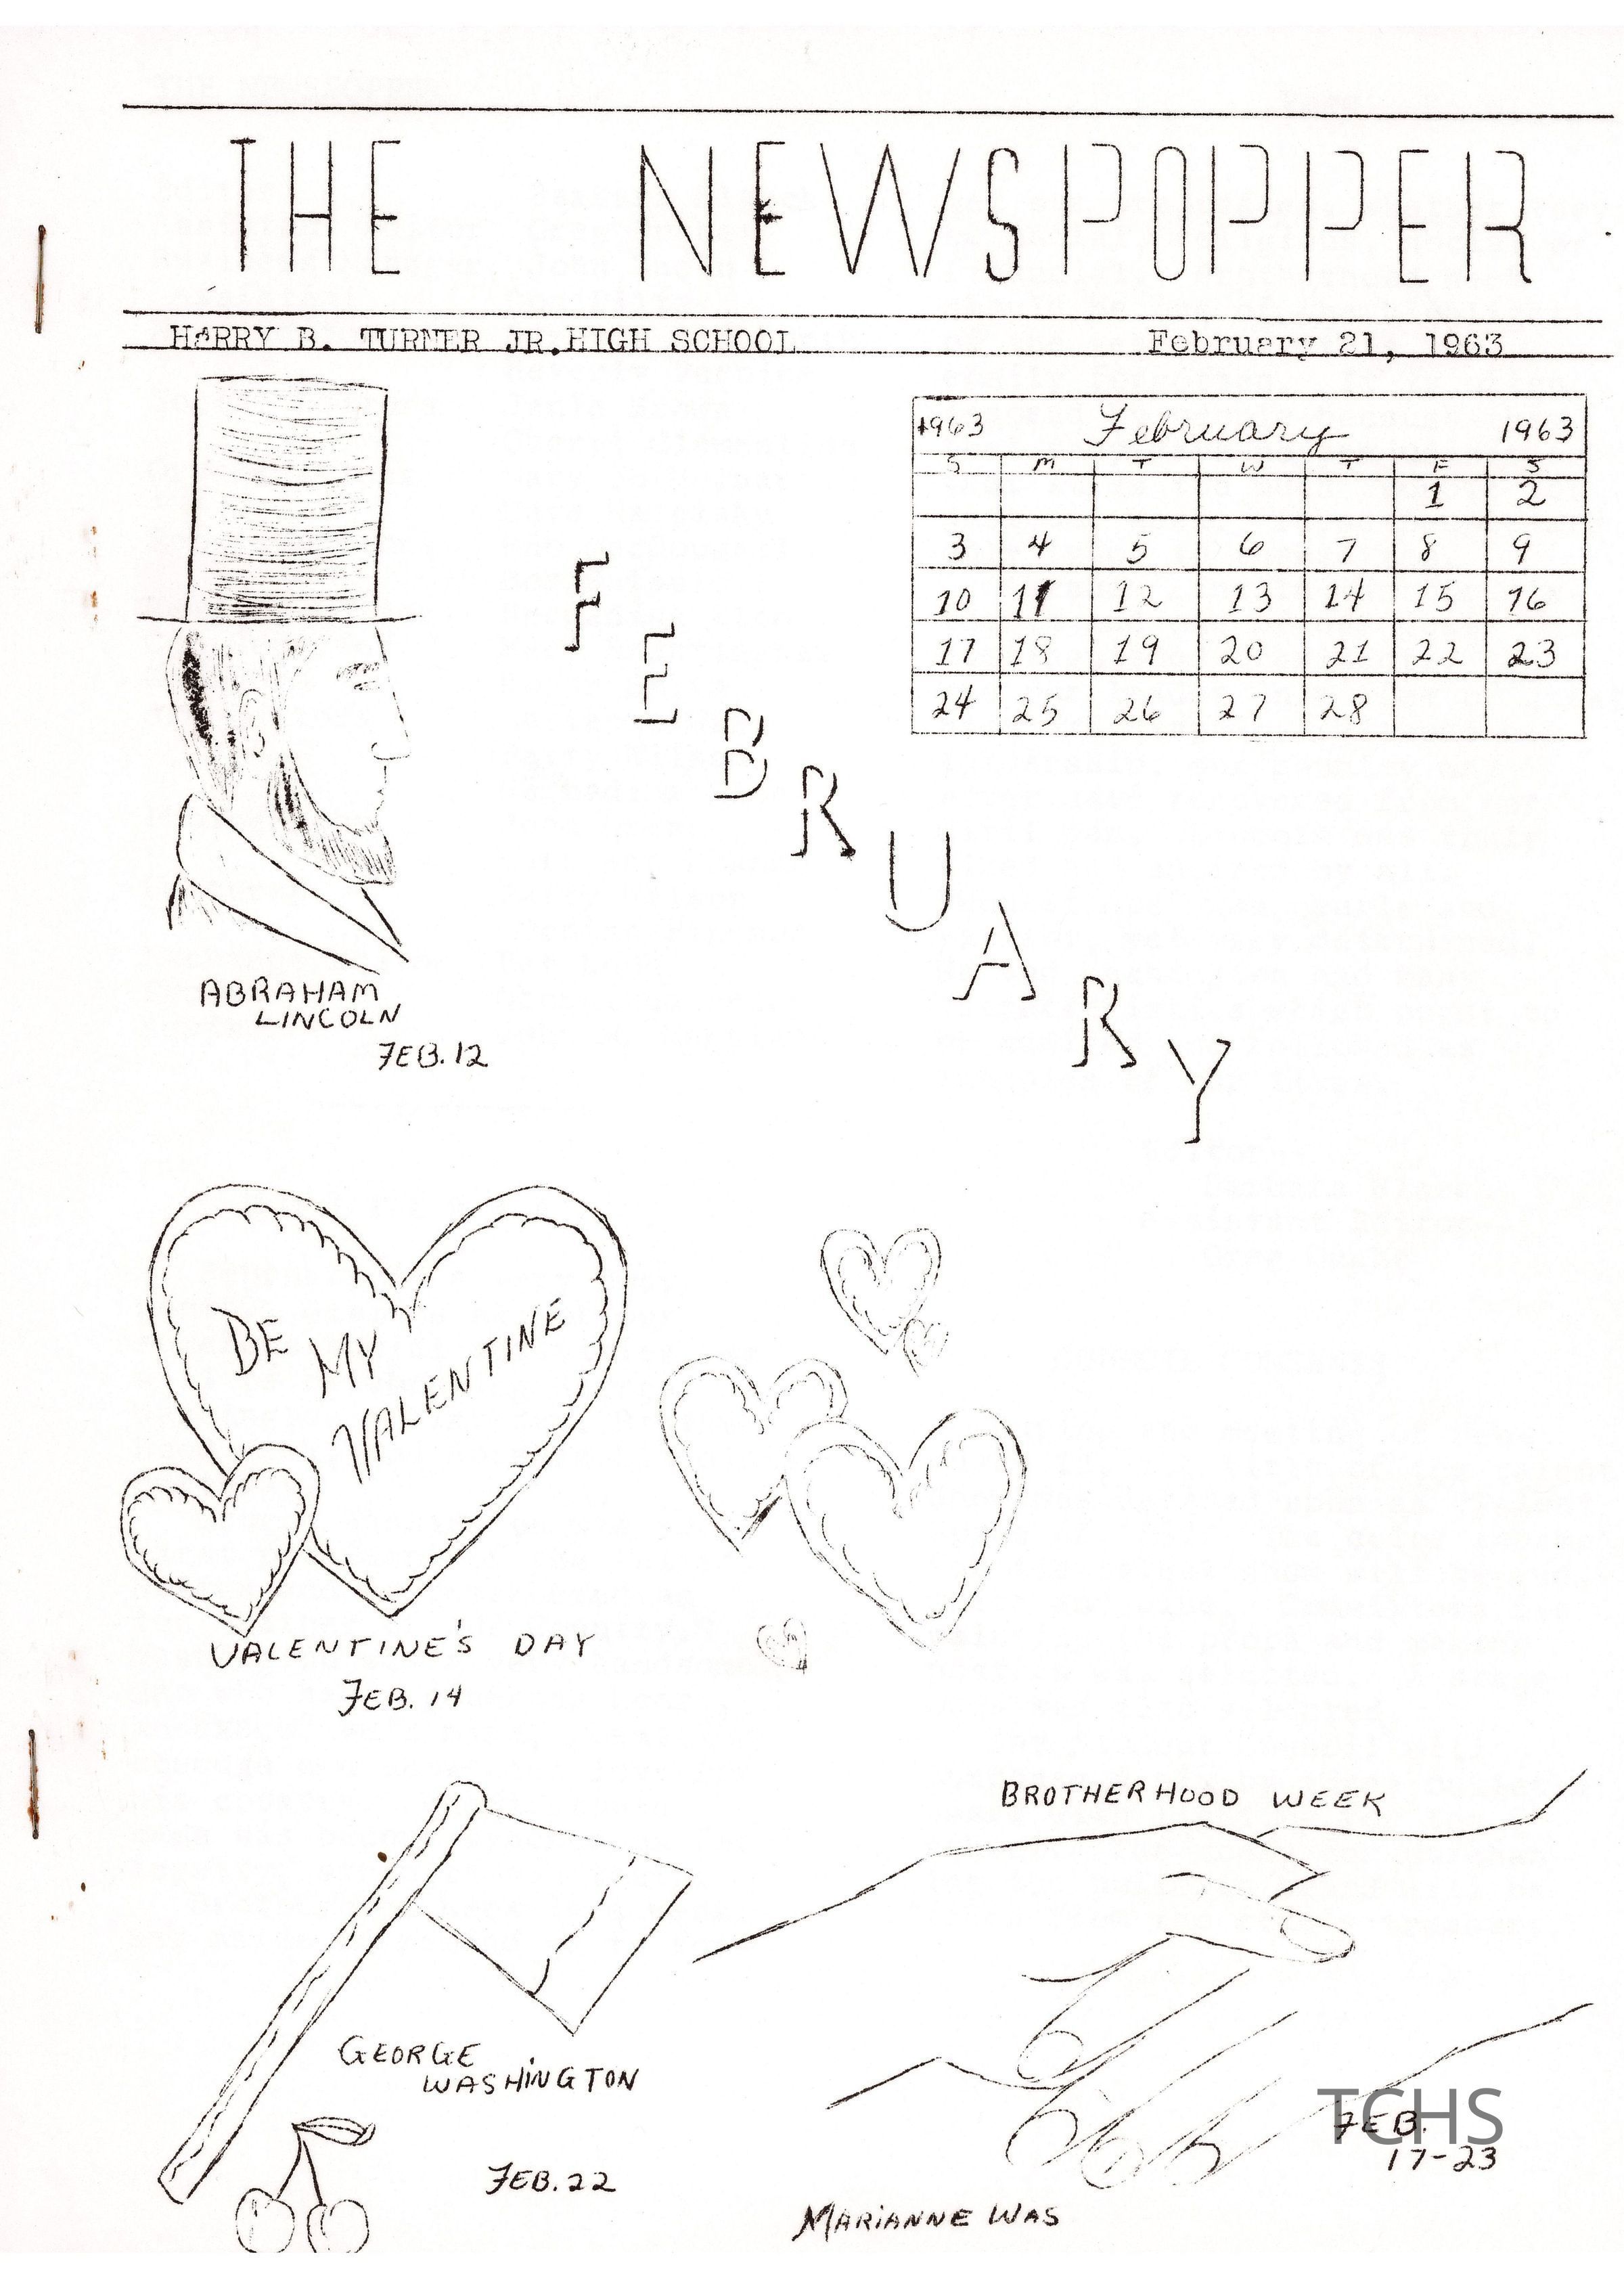 THE NEWSPOPPER
HARRY B. TURNER JR. HIGH SCHOOL February 21, 1963
1963 February 1963
S M T W T F S
1 2
3 4 5 6 7 8 9
10 11 12 13 14 15 16
17 18 19 20 21 22 23
24 25 26 27 28
FEBRUARY
ABRAHAM
LINCOLN
FEB. 12
BE
MY
VALENTINE
VALENTINE'S DAY
FEB. 14
BROTHERHOOD WEEK
GEORGE
WASHINGTON
FEB. 22
FEB.
17-23
TCHS
MARIANNE WAS